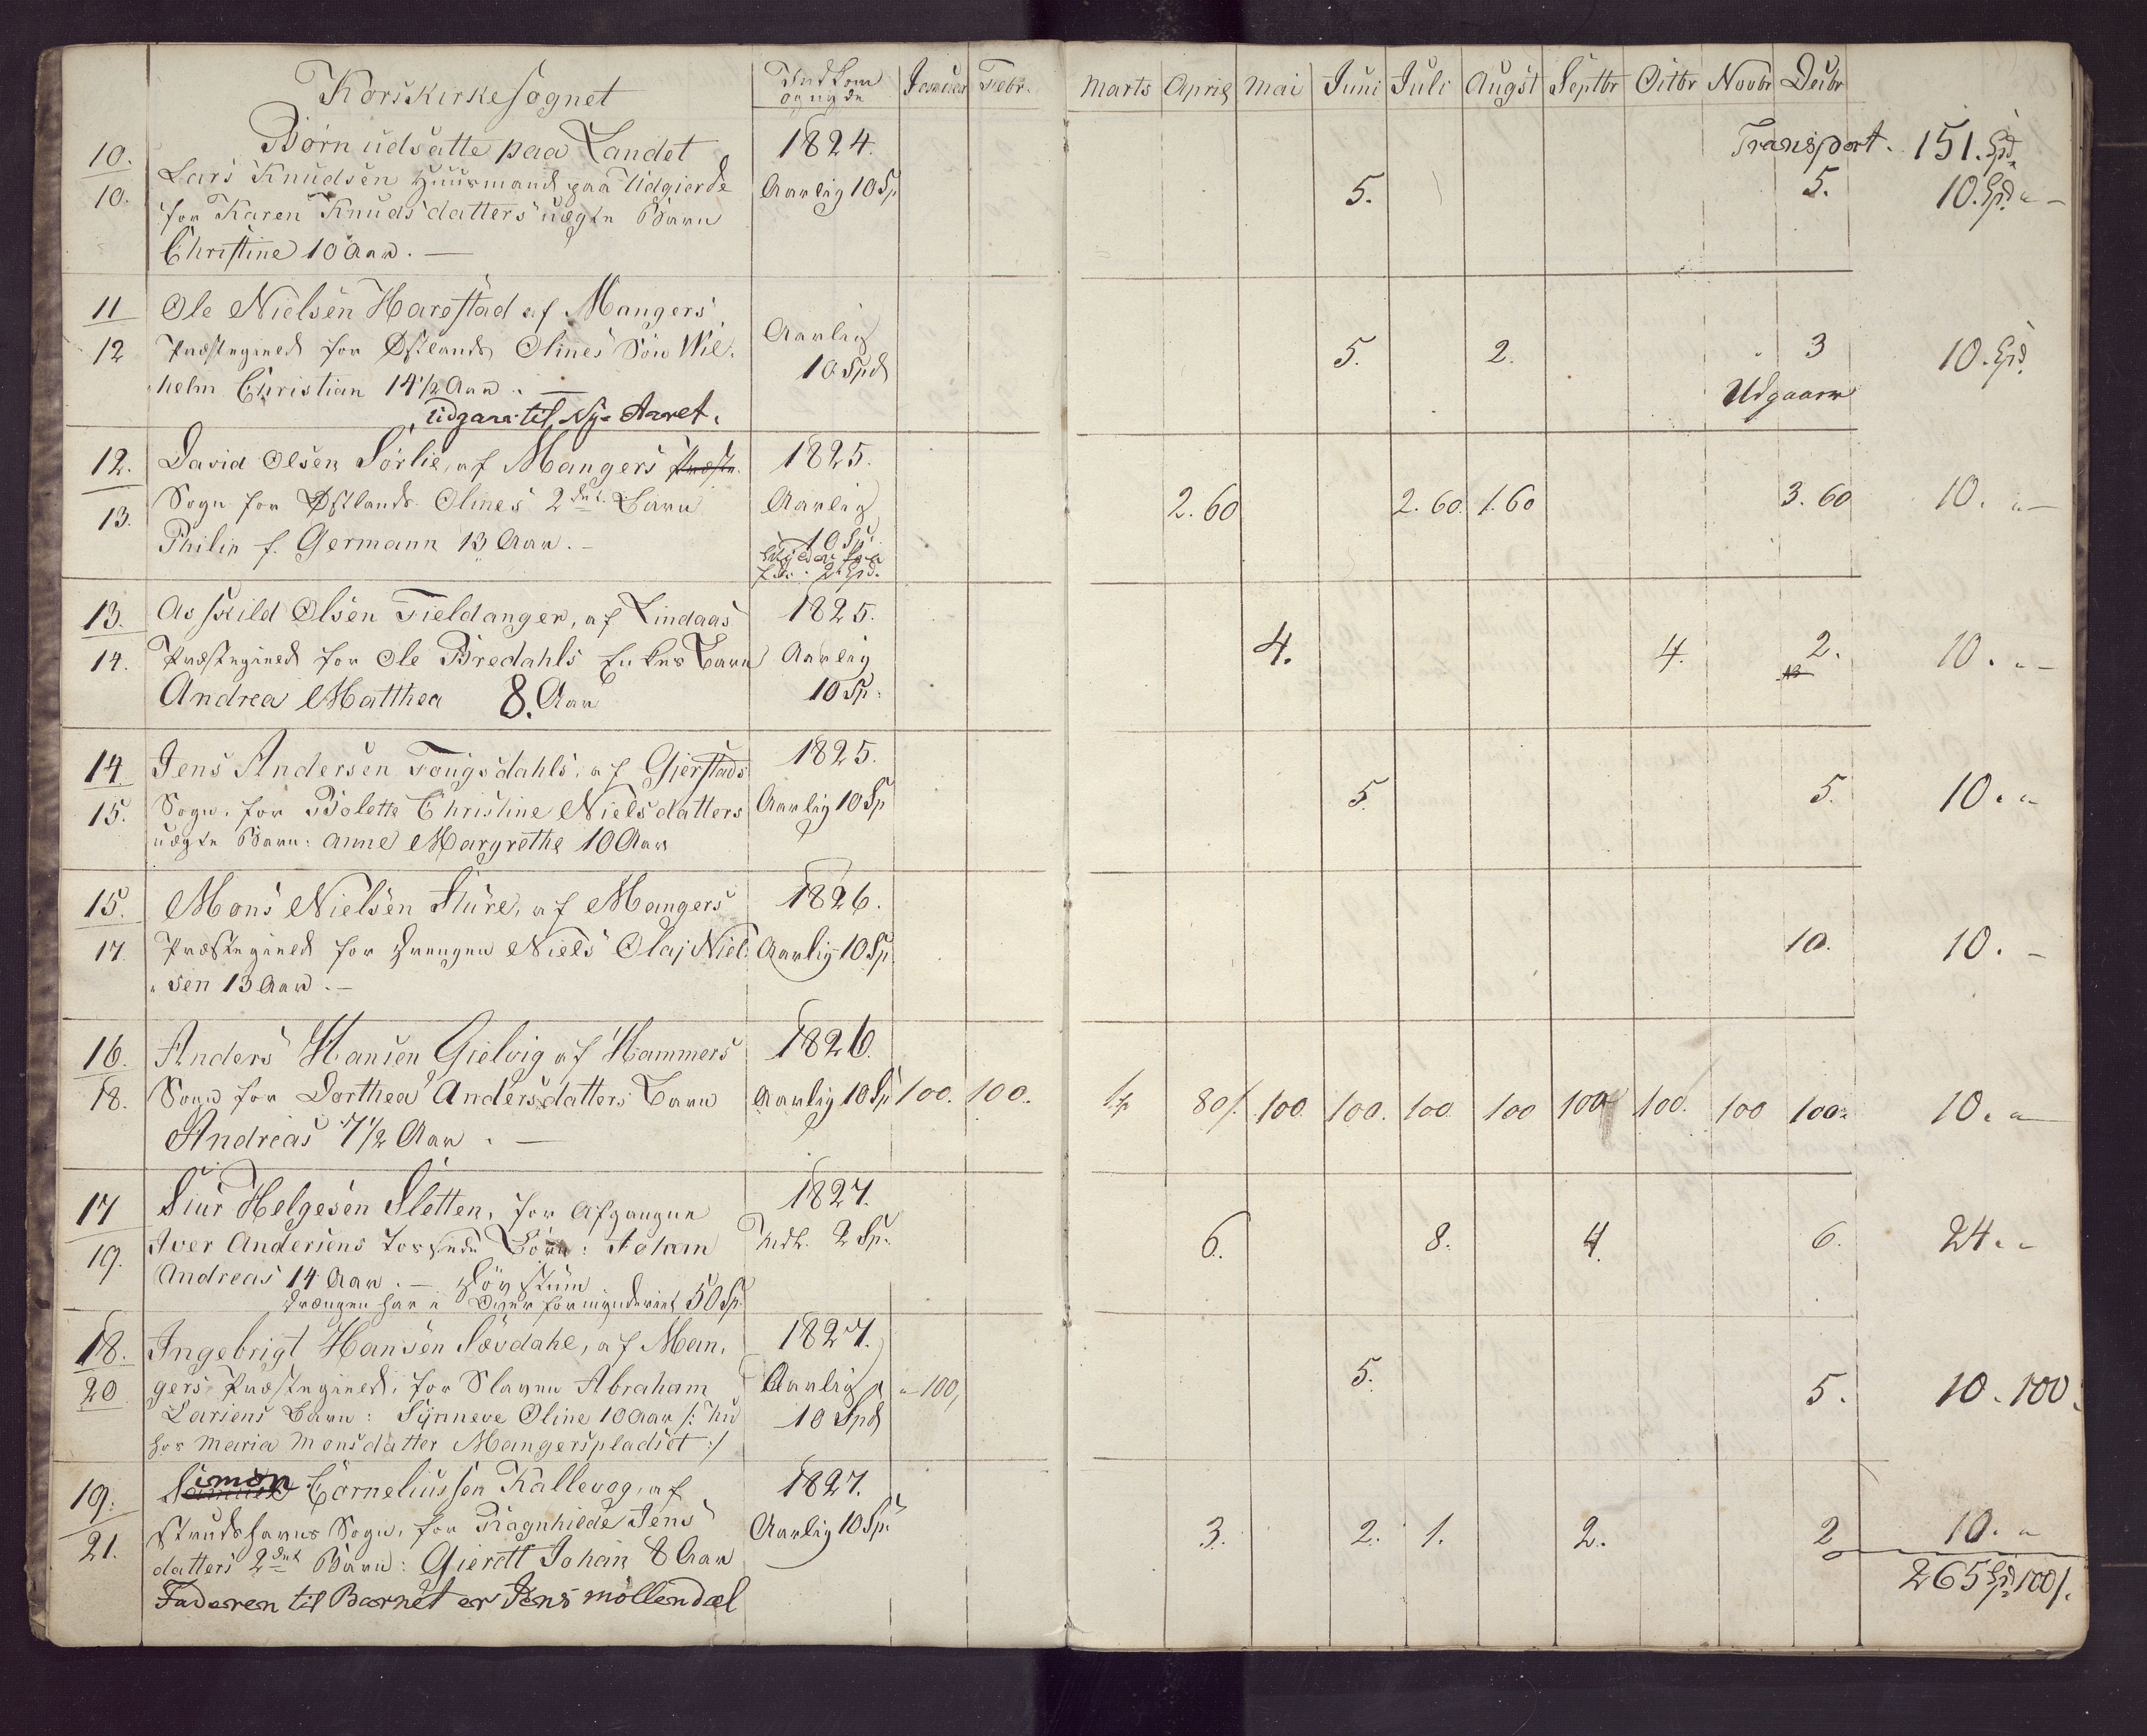 Korskirkesognet
Indkom og nyde
Januar Febr. Marts April Mai Juni Juli Augst Septbr Octbr Novbr Decbr
Børn udsatte paa Landet 1824. Transport. 151. Spd.
10. Lars Knudsen Huusmand paa Udgierde Aarlig 10 Sp 5. 5. 10. Spd. "
10. for Karen Knudsdatters uægte Barn
Christine 10 Aar. —
11 Ole Nielsen Harestad af Mangers
12 Præstegield for Østlands Olines Søn Wil- Aarlig 5. 2. 3 10. Spd.
helm Christian 14 1/2 Aar. — 10 Spd Udgaaer
Udgaar til Ny-Aaret.
12. David Olsen Sørlie, af Mangers Præste- 1825.
13. Sogn for Østlands Olines 2det Barn Aarlig 2.60 2.60. 1.60 3.60 10. "
Philip f. Germann 13 Aar. — 10 Sp
13. Askild Olsen Fieldanger, af Lindaas 1825.
14. Præstegield for Ole Bredahls Enkes Barn Aarlig 4. 4. 2. 10. "
Andrea Matthea 8. Aar 10 Sp.
14. Jens Andersen Fougsdahls, af Gjerstads 1825.
15. Sogn, for Bolette Christine Nielsdatters Aarlig 10 Sp 5. 5. 10. "
uægte Barn: Anne Margrethe 10 Aar
15. Mons Nielsen Sture, af Mangers 1826.
17 Præstegield for Drengen Niels Olaj Niel- Aarlig 10 Sp 10. 10. –
sen 13 Aar. —
16. Anders Hansen Gielvig af Hammers 1826.
18. Sogn for Dorthea Andersdatters Barn Aarlig 10 Sp 100. 100. 80/. 100 100. 100 100 100 100. 100 100 10. "
Andreas 7 1/2 Aar. —
17 Siur Helgesen Sletten, for Afgangne 1827.
19. Iver Andersens Børn: Adam Mdl. 2 Sp. 6. 8. 4. 6. 24. "
Andreas 14 Aar. — Døvstum
Drengen har i Overformynderiet 50 Sp.
18. Ingebrigt Hansen Sævdahl, af Man- 1827.
20 gers Præstegield, for Slaven Abraham Aarlig " 100, 5. 5. 10. 100.
Larsens Barn: Synneve Oline 10 Aar /: nu 10 Spd
hos Maria Monsdatter Mangerspladset :/
19. Simon Corneliussen Kallevog, af 1827.
21. Strudshavns Sogn, for Ragnhilde Jens Aarlig 10 Sp. 3. 2. 1. 2. 2 10. "
datters 2det Barn: Gierdt Johan 8 Aar 265 Spd 100/.
Faderen til Barnet er Jens Møllendal